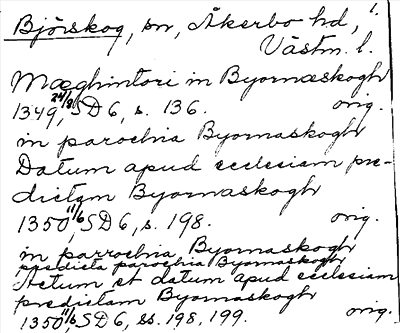 Björskog, sn, Åkerbo hd, 1.
Västm. l.
Mæghintori in Byornæskogh
1349 24/8, SD 6, s. 136. orig.
in parochia Byornaskogh
Datum apud ecclesiam pre-
dictam Byornaskogh
1350 11/6, SD 6, s. 198. orig.
in parrochia Byornaskogh
predicta parochia Byornaskogh
Actum et datum apud ecclesiam
predictam Byornaskogh
1350 11/6, SD 6, ss. 198, 199. orig.